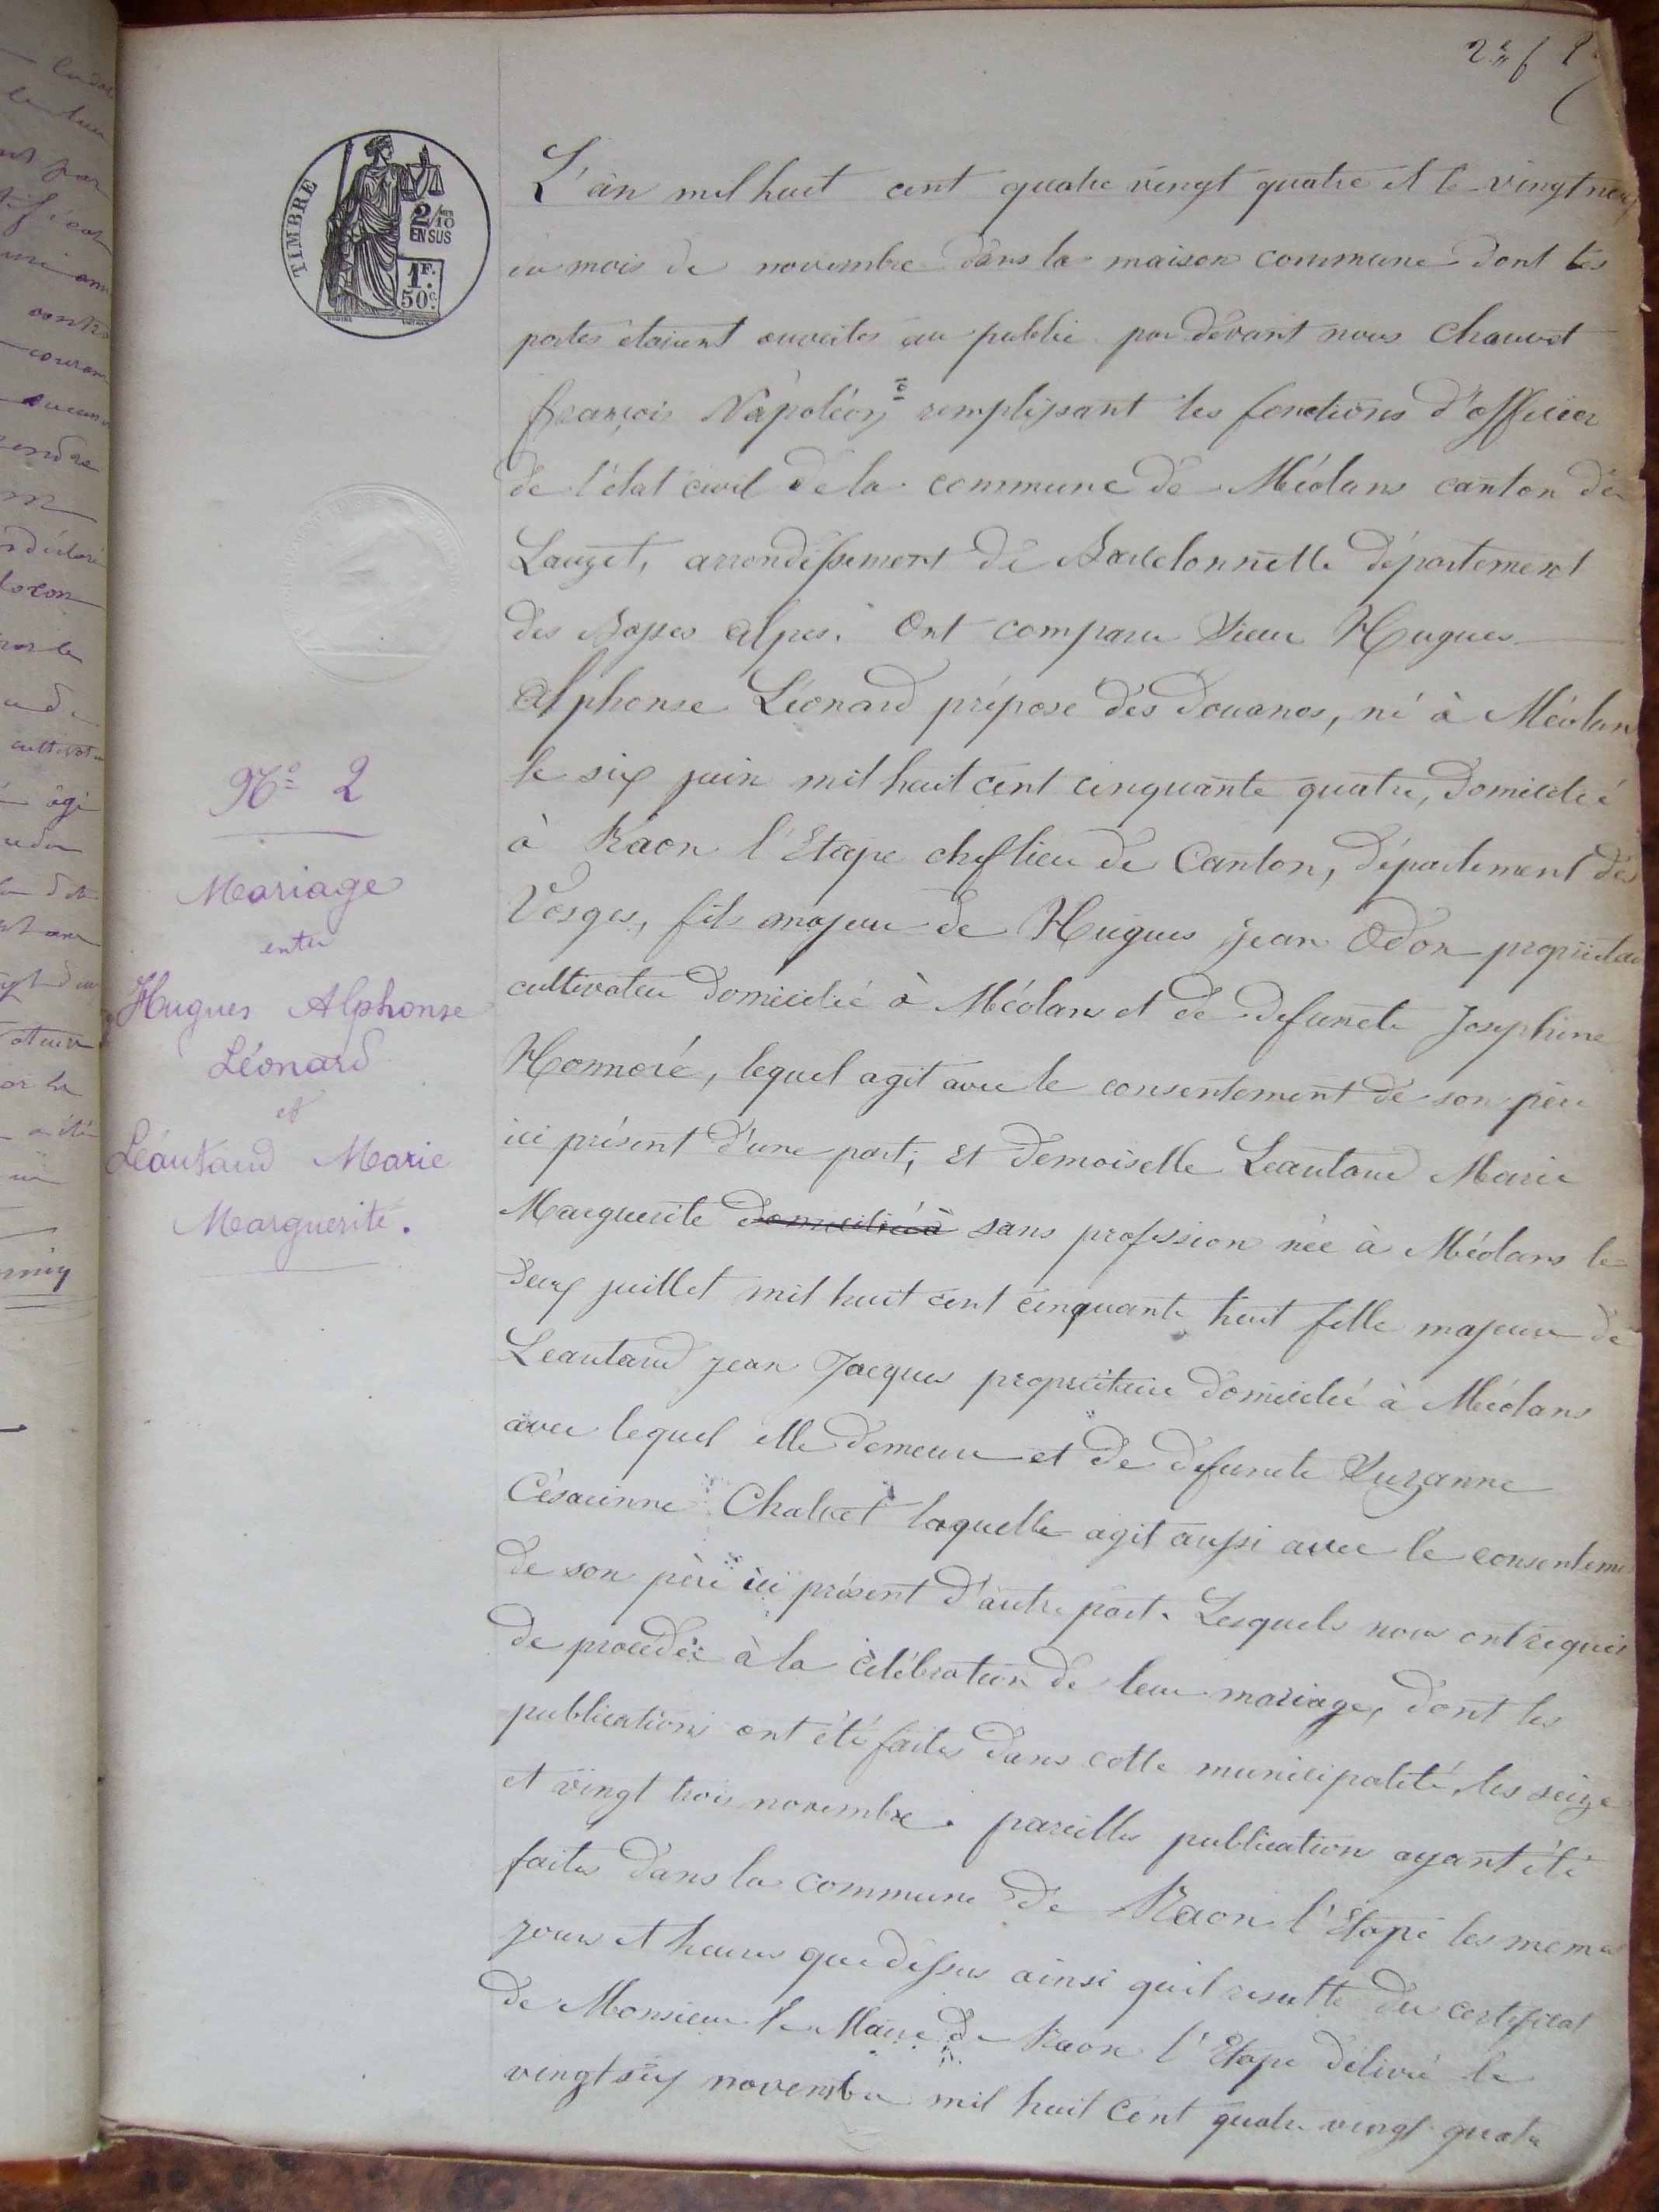 TIMBRE
2/10 EN SUS
1F. 50c.
L'an mil huit cent quatre vingt quatre et le vingt neuf
du mois de novembre dans la maison commune dont les
portes étaient ouvertes au public par devant nous Chauvet
françois Napoléon remplissant les fonctions d'officier
de l'état civil de la commune de Méolans canton de
Lauzet, arrondissement de Barcelonnette département
des Basses Alpes. Ont comparu Sieur Hugues
Alphonse Léonard préposé des Douanes, né à Méolans
le six juin mil huit cent cinquante quatre, domicilié
à Raon l'Etape chef lieu de Canton, département des
Vosges, fils majeur de Hugues jean Odon propriétaire
cultivateur domicilié à Méolans et de défuncte Josephine
Honnoré, lequel agit avec le consentement de son père
ici présent d'une part; et demoiselle Leautaud Marie
Marguerite domiciliée à sans profession née à Méolans le
deux juillet mil huit cent cinquante huit fille majeure de
Leautaud jean Jacques propriétaire domicilié à Méolans
avec lequel elle demeure et de défuncte Suzanne
Césarinne Chalvet laquelle agit aussi avec le consentement
de son père ici présent d'autre part. Lesquels nous ont requis
de procéder à la célébration de leur mariage, dont les
publications ont été faites dans cette municipalité, les seize
et vingt trois novembre. pareilles publication ayant été
faites dans la commune de Raon l'Etape les memes
jours et heures que dessus ainsi qu'il resulte du certificat
de Monsieur le Maire de Raon l'Etape délivré le
vingt six novembre mil huit cent quatre vingt quatre
No 2
Mariage
entre
Hugues Alphonse
Léonard
et
Léautaud Marie
Marguerite.